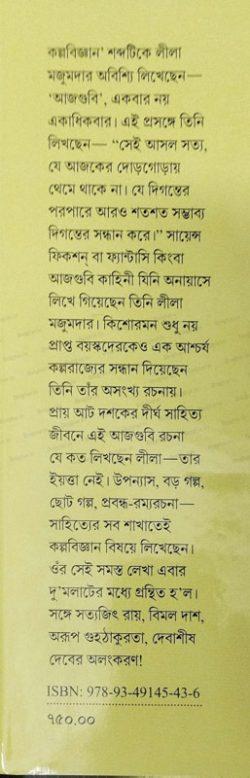 কল্পবিজ্ঞান' শব্দটিকে লীলা
মজুমদার অবিশ্যি লিখেছেন—
'আজগুবি', একবার নয়
একাধিকবার। এই প্রসঙ্গে তিনি
লিখছেন— “সেই আসল সত্য,
যে আজকের দোড়গোড়ায়
থেমে থাকে না। যে দিগন্তের
পরপারে আরও শতশত সম্ভাব্য
দিগন্তের সন্ধান করে।” সায়েন্স
ফিকশন্ বা ফ্যান্টাসি কিংবা
আজগুবি কাহিনী যিনি অনায়াসে
লিখে গিয়েছেন তিনি লীলা
মজুমদার। কিশোরমন শুধু নয়
প্রাপ্ত বয়স্কদেরকেও এক আশ্চর্য
কল্পরাজ্যের সন্ধান দিয়েছেন
তিনি তাঁর অসংখ্য রচনায়।
প্রায় আট দশকের দীর্ঘ সাহিত্য
জীবনে এই আজগুবি রচনা
যে কত লিখছেন লীলা—তার
ইয়ত্তা নেই। উপন্যাস, বড় গল্প,
ছোট গল্প, প্রবন্ধ-রম্যরচনা—
সাহিত্যের সব শাখাতেই
কল্পবিজ্ঞান বিষয়ে লিখেছেন।
ওঁর সেই সমস্ত লেখা এবার
দু'মলাটের মধ্যে গ্রন্থিত হ'ল।
সঙ্গে সত্যজিৎ রায়, বিমল দাশ,
অরূপ গুহঠাকুরতা, দেবাশীষ
দেবের অলংকরণ!
ISBN: 978-93-49145-43-6
৭৫০.০০